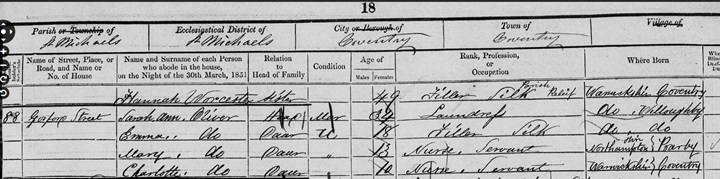 18
Parish or Township of Ecclesiastical District of City or Borough of Town of Village of
St Michaels St Michaels Coventry Coventry
Name of Street, Place, or Road, and Name or No. of House
Name and Surname of each Person who abode in the house, on the Night of the 30th March, 1851
Relation to Head of Family
Condition
Age of
Males Females
Rank, Profession, or Occupation
Where Born
Hannah Worcester 49 Filler Silk Parish Relief Warwickshire Coventry
88 Gosford Street Sarah Ann Oliver Mar 34 Laundress do Willoughby
Emma do Daur U 18 Filler Silk do do
Mary do Daur " 13 Nurse Servant Northamptonshire Barby
Charlotte do Daur " 10 Nurse Servant Warwickshire Coventry